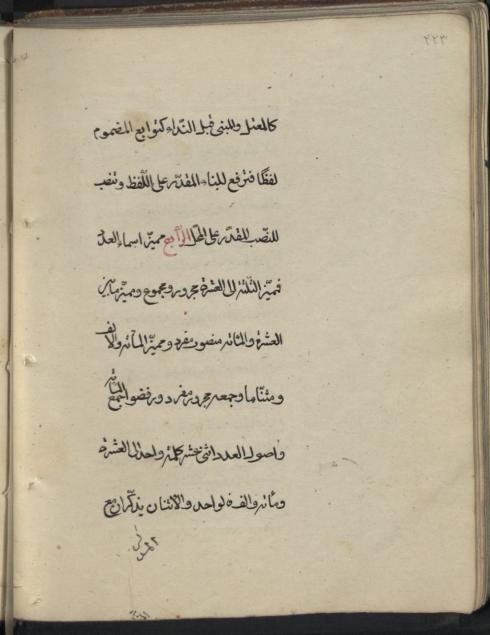 ٢٢٣
كالمعتل والمبنى قبل النداء كتوابع المضموم
لفظا فترفع للبناء المقدر على اللفظ وتنصب
للنصب المقدر على المحل الرابع مميز اسماء العدد
فمميز الثلثة الى العشرة مجرور ومجموع ومميز ما بين
العشرة والمائة منصوب مفرد ومميز المائة والالف
ومثناهما وجمعه مجرور مفرد ورفضوا جمع المائة
واصول العدد اثنى عشر كلمة واحد الى العشرة
ومائة والف فالواحد والاثنان يذكران مع
المذكر